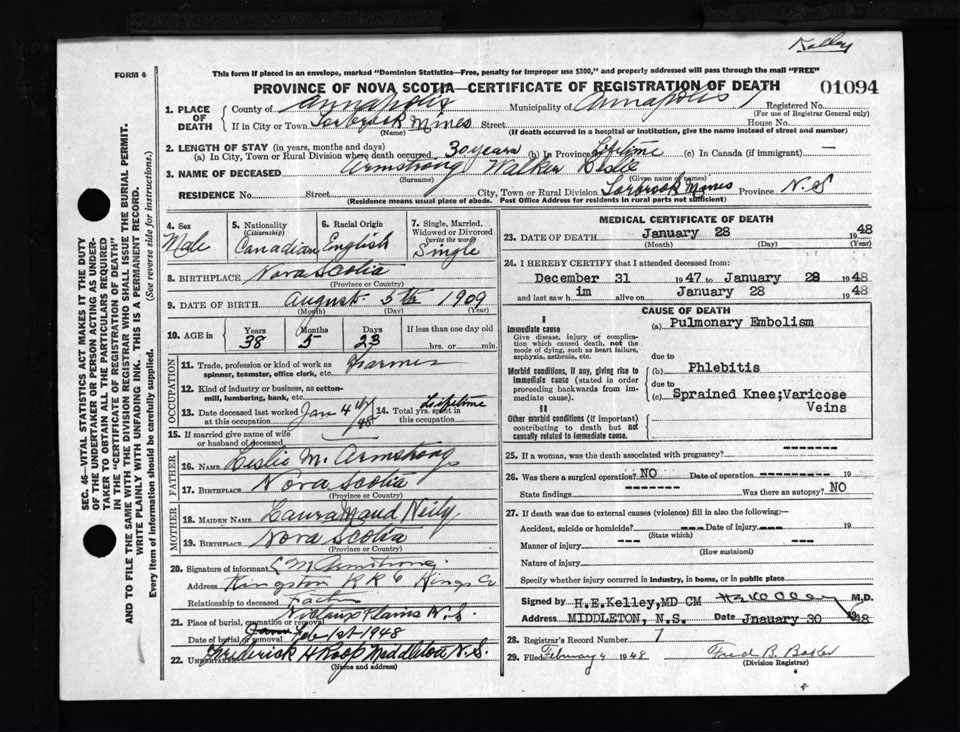 Kelley
FORM 6
This form if placed in an envelope, marked "Dominion Statistics—Free, penalty for improper use $300," and properly addressed will pass through the mail "FREE"
PROVINCE OF NOVA SCOTIA—CERTIFICATE OF REGISTRATION OF DEATH 01094
1. PLACE OF DEATH County of Annapolis Municipality of Annapolis Registered No.
(For use of Registrar General only)
If in City or Town Torbrook Mines Street House No.
(Name) (If death occurred in a hospital or institution, give the name instead of street and number)
2. LENGTH OF STAY (in years, months and days)
(a) In City, Town or Rural Division where death occurred 30 years (b) In Province Lifetime (c) In Canada (if immigrant) —
3. NAME OF DECEASED Armstrong Walker Leslie
(Surname) (Given name or names)
RESIDENCE No. Street City, Town or Rural Division Torbrook Mines Province N.S
(Residence means usual place of abode. Post Office Address for residents in rural parts not sufficient)
4. Sex Male
5. Nationality (Citizenship) Canadian
6. Racial Origin English
7. Single, Married, Widowed or Divorced (write the word) Single
8. BIRTHPLACE Nova Scotia
(Province or Country)
9. DATE OF BIRTH August 5th 1909
(Month) (Day) (Year)
10. AGE in Years 38 Months 5 Days 23 If less than one day old
hrs. or min.
OCCUPATION
11. Trade, profession or kind of work as spinner, teamster, office clerk, etc. Farmer
12. Kind of industry or business, as cotton-mill, lumbering, bank, etc.
13. Date deceased last worked at this occupation Jan 4th/48 14. Total yrs. spent in this occupation Lifetime
15. If married give name of wife or husband of deceased
FATHER
16. NAME Leslie M. Armstrong
17. BIRTHPLACE Nova Scotia
(Province or Country)
MOTHER
18. MAIDEN NAME Laura Maud Neily
19. BIRTHPLACE Nova Scotia
(Province or Country)
20. Signature of informant L M Armstrong
Address Kingston RR 6 Kings Co
Relationship to deceased Father
21. Place of burial, cremation or removal Plains N.S.
Date of burial or removal Feb 1st 1948
22. UNDERTAKER Frederick H Roop Middleton N.S.
(Name and address)
MEDICAL CERTIFICATE OF DEATH
23. DATE OF DEATH January 28 1948
(Month) (Day) (Year)
24. I HEREBY CERTIFY that I attended deceased from:
December 31 1947 to January 28 1948
and last saw him alive on January 28 1948
CAUSE OF DEATH
I
Immediate cause (a) Pulmonary Embolism
Give disease, injury or complication which caused death, not the mode of dying, such as heart failure, asphyxia, asthenia, etc.
due to
Morbid conditions, if any, giving rise to immediate cause (stated in order proceeding backwards from immediate cause). (b) Phlebitis
due to
(c) Sprained Knee;Varicose Veins
II
Other morbid conditions (if important) contributing to death but not causally related to immediate cause.
25. If a woman, was the death associated with pregnancy? -------
26. Was there a surgical operation? NO Date of operation --------- 19
State findings ------- Was there an autopsy? NO
27. If death was due to external causes (violence) fill in also the following:—
Accident, suicide or homicide? --- Date of injury ---- 19
(State which)
Manner of injury --- ---
(How sustained)
Nature of injury
Specify whether injury occurred in industry, in home, or in public place
Signed by H.E.Kelley,MD CM H E Kelley M.D.
Address MIDDLETON, N.S. Date Jnauary 30 1948
28. Registrar's Record Number 7
29. Filed February 4 1948 Fred B. 
(Division Registrar)
SEC. 46—VITAL STATISTICS ACT MAKES IT THE DUTY
OF THE UNDERTAKER OR PERSON ACTING AS UNDER-
TAKER TO OBTAIN ALL THE PARTICULARS REQUIRED
IN THE "CERTIFICATE OF REGISTRATION OF DEATH"
AND TO FILE THE SAME WITH THE DIVISION REGISTRAR WHO SHALL ISSUE THE BURIAL PERMIT.
WRITE PLAINLY WITH UNFADING INK. THIS IS A PERMANENT RECORD.
Every item of information should be carefully supplied. (See reverse side for instructions.)